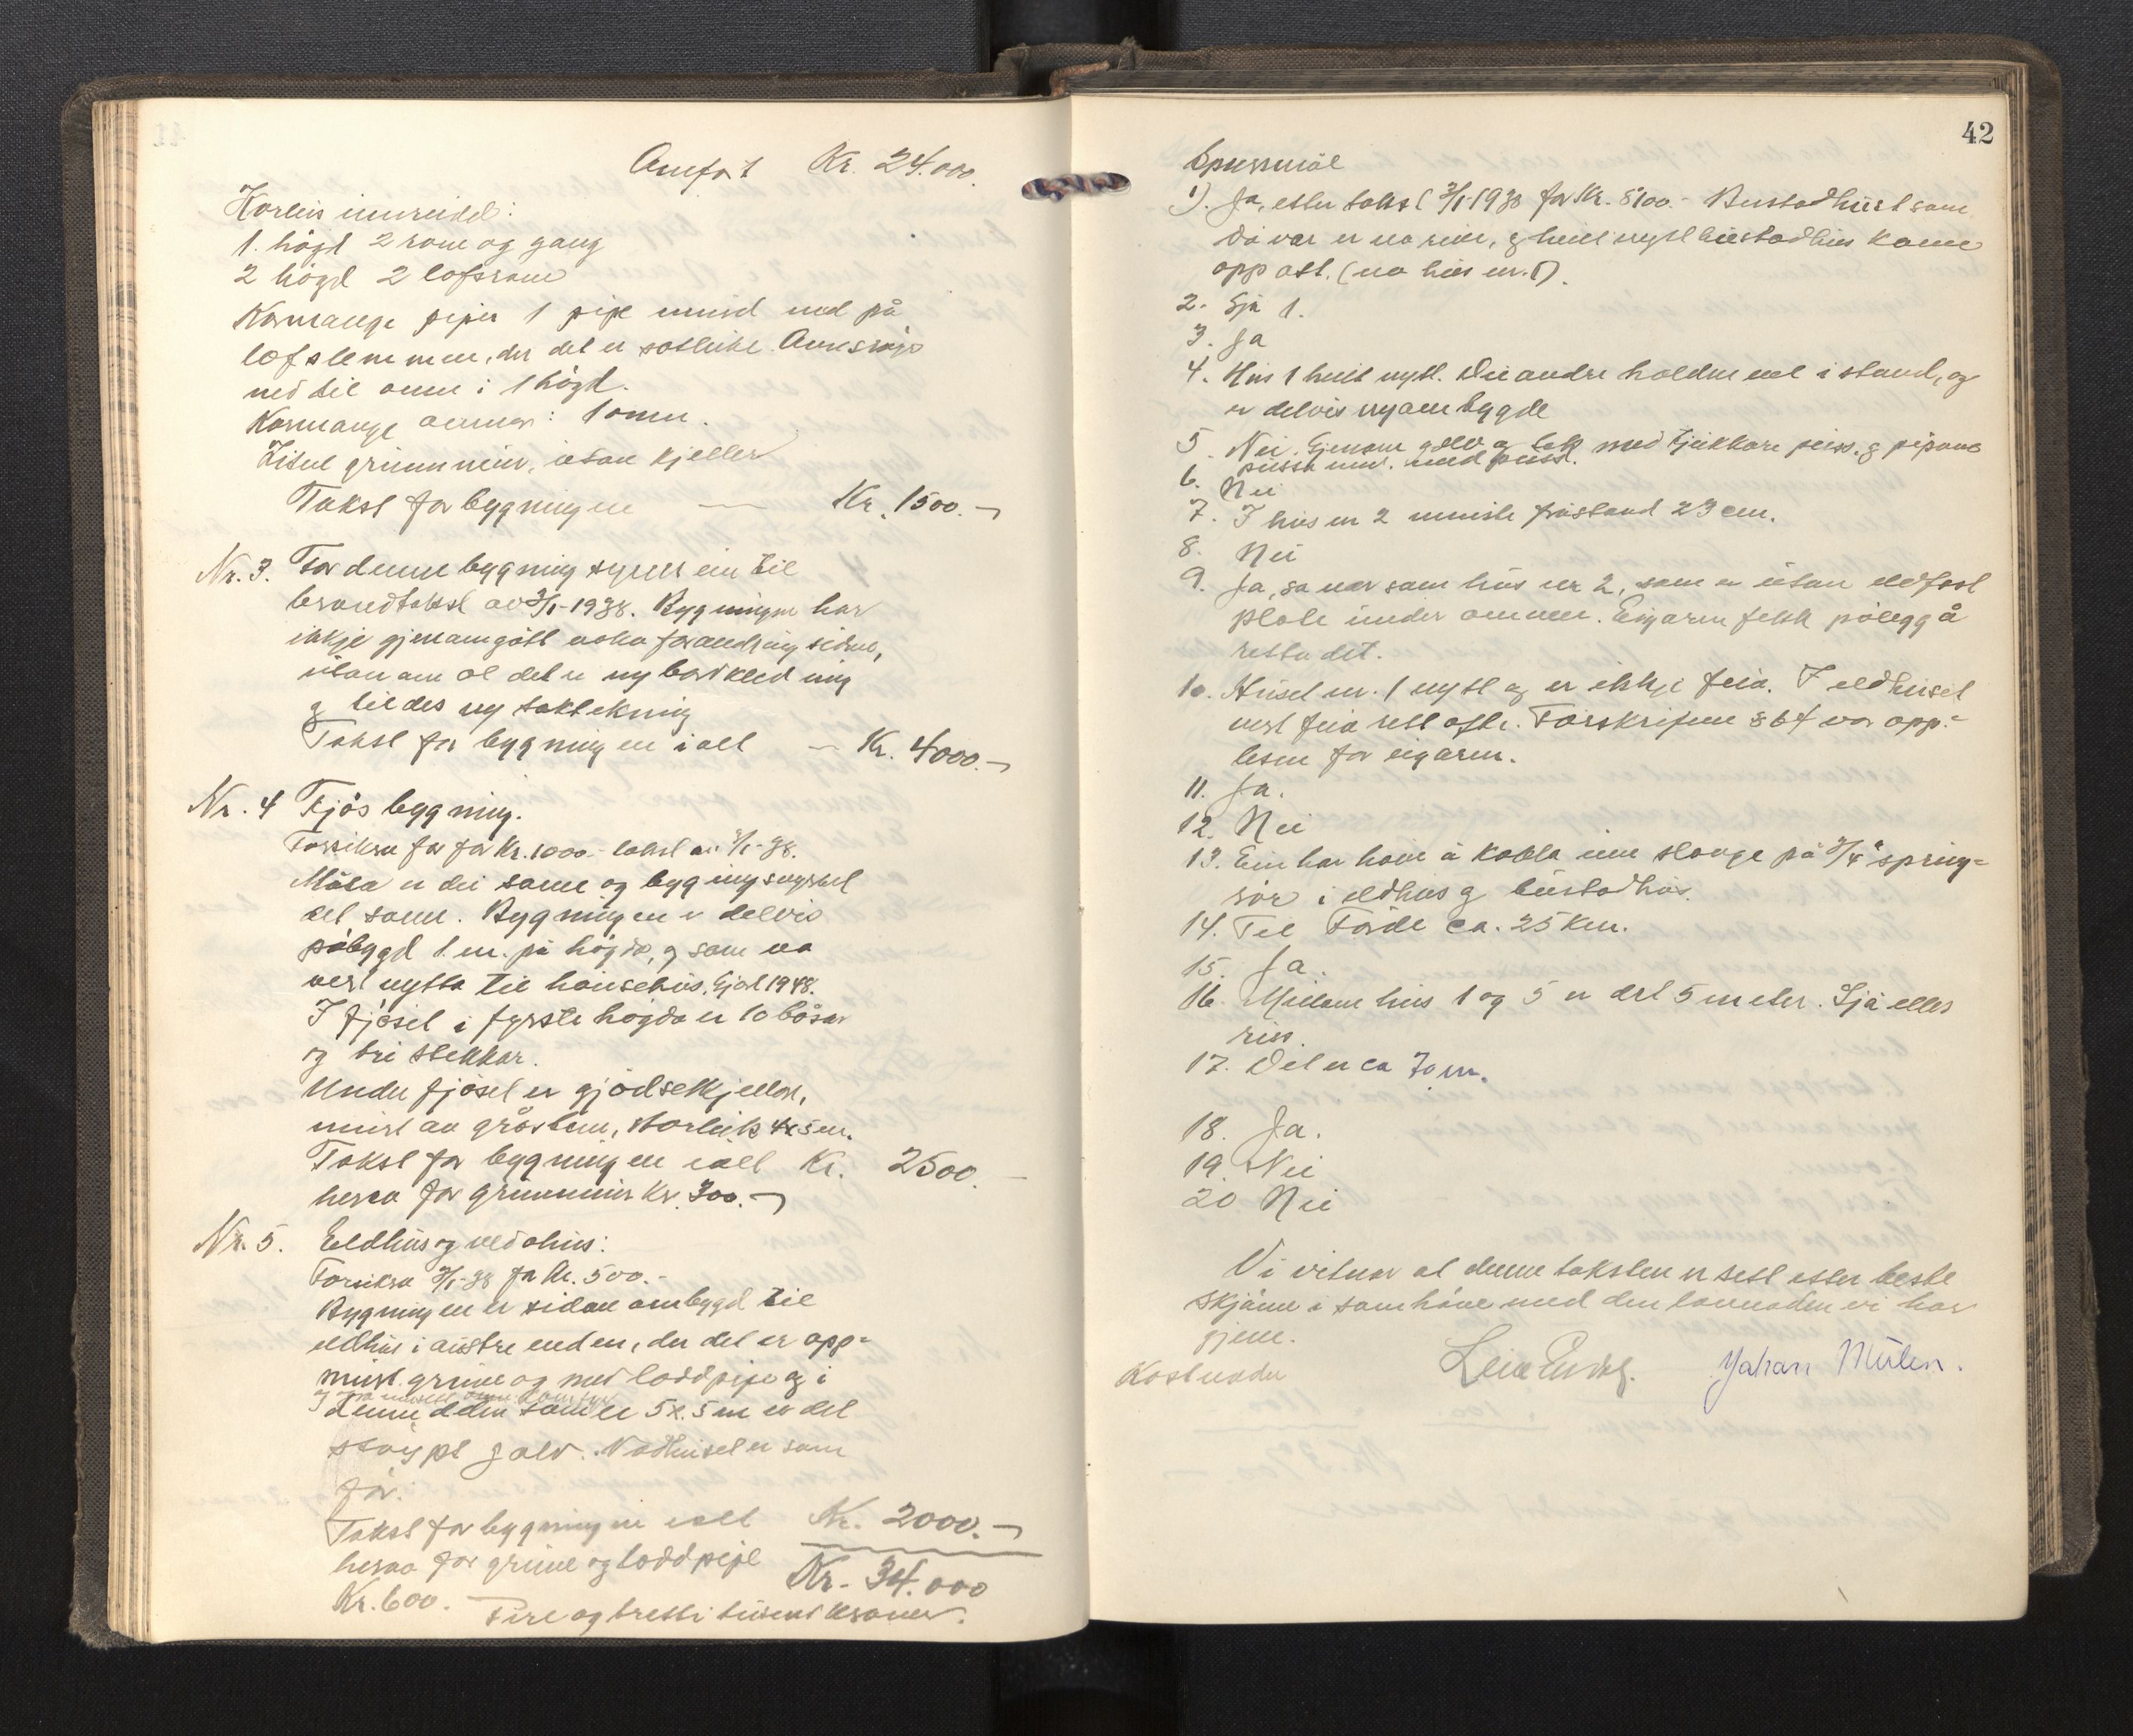 Amfört Kr. 24.000.
Korleis innreidd:
1. högd 2 rom og gang
2 högd 2 loftsrom
Kormange piper 1 pipe murd ned på
loftslemmen, der det er sotluke. Omnsrör
ned til omn i 1 högd.
Kormange omnar: 1 omn.
Liten grunnmur, utan kjeller
Takst for bygningen — Kr. 1500.-
Nr. 3. For denne bygning syner ein til
brandtakst av 3/1-1938. Bygningen har
ikkje gjenomgått noka forandring sidan,
utan om at det er ny bordkledning
og tildes ny taktekning
Takst for bygningen i alt — Kr. 4000.-
Nr. 4 Fjös bygning.
Forsikra för for Kr. 1000.- takst av 3/1-38.
Måla er dei same og bygningsmåten
det same. Bygningen er delvis
påbygd 1 m. på högda, og som no
vert nytta til hönsehus. Gjort 1948.
I fjöset i fyrste högda er 10 båsar
og tri stekkar.
Under fjöset er gjödselkjellar,
murt av gråstein, storleik 4x5 m.
Takst for bygningen i alt Kr. 2500.-
herav for grunnmur Kr. 300.-
Nr. 5. Eeldhus og vedahus:
Forsikra 3/1-38 for Kr. 500.-
Bygningen er sidan ombygd til
eldhus i austre enden, der det er opp=
murt grue og med loddpipe og i
denne delen som er 5x5 m er det
stöypt golv. Vedhuset er som
för.
Takst for bygningen i alt Kr. 2000.-
herav for grue og loddpipe
Kr. 600. Kr. 34.000
Fire og tretti tusend kroner.
42
Spursmål
1). Ja, etter takst 3/1-1938 for Kr. 8100.- Bustadhuset som
då var er no rive, og heilt nytt bustadhus kome
opp att. (no hus nr. 1).
2. Sjå 1.
3. Ja
4. Hus 1 heilt nytt. Dei andre haldne vel i stand, og
er delvis nyombygde
5. Nei. Gjenom golv og tak med tjukkare puss. og pipone
pussa med puss.
6. Nei
7. I hus nr 2 minste fråstand 23 cm.
8. Nei
9. Ja, so nær som hus nr 2, som er utan eldfast
plate under omnen. Eigaren fekk pålegg å
retta det.
10. Huset nr. 1 nytt og er ikkje feia. I eldhuset
vert feia rett ofte. Forskriftene § 64 var opp=
lesne for eigaren.
11. Ja.
12. Nei
13. Ein har höve å kobla inn slange på 3/4" spring=
rör i eldhus og bustadhus.
14. Til Förde ca. 25 km.
15. Ja.
16. Millom hus 1 og 5 er det 5 meter. Sjå elles
riss.
17. Det er ca 70 m.
18. Ja.
19. Nei
20 Nei
Vi vitnar at denne taksten er sett etter beste
skjöne i samhöve med den lovnaden vi har
gjeve.
Kostnader Johan Mülen.